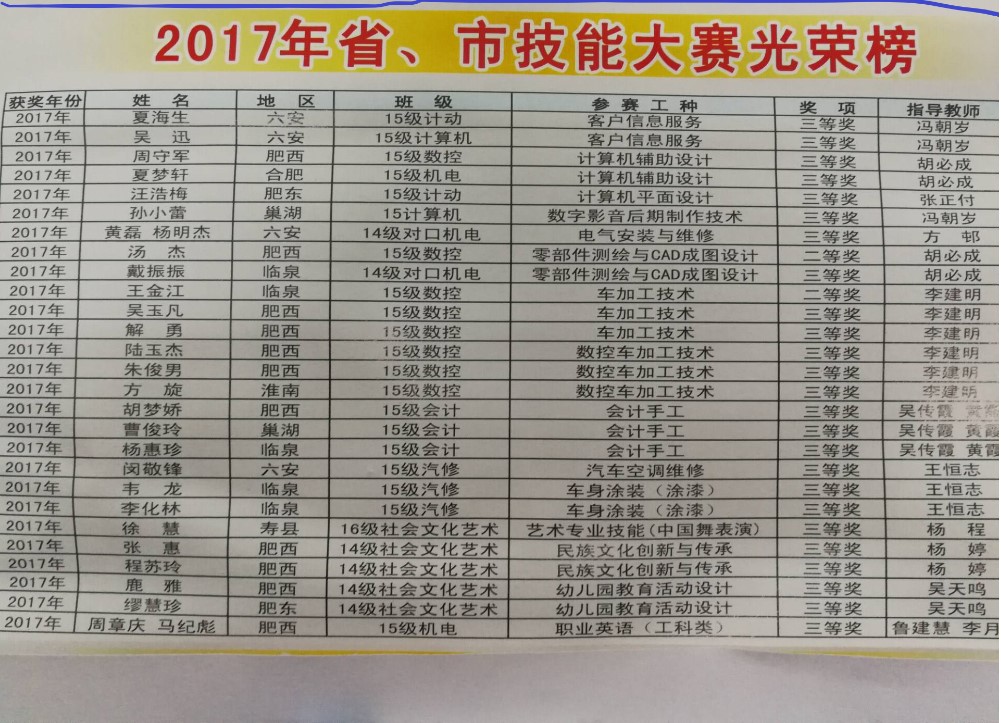 2017年省、市技能大赛光荣榜
获奖年份 姓 名 地 区 班 级 参 赛 工 种 奖 项 指导教师
2017年 夏海生 六安 15级计动 客户信息服务 三等奖 冯朝岁
2017年 吴 迅 六安 15级计算机 客户信息服务 三等奖 冯朝岁
2017年 周守军 肥西 15级数控 计算机辅助设计 三等奖 胡必成
2017年 夏梦轩 合肥 15级机电 计算机辅助设计 三等奖 胡必成
2017年 汪浩梅 肥东 15级计动 计算机平面设计 三等奖 张正付
2017年 孙小蕾 巢湖 15计算机 数字影音后期制作技术 三等奖 冯朝岁
2017年 黄磊 杨明杰 六安 14级对口机电 电气安装与维修 三等奖 方 邨
2017年 汤 杰 肥西 15级数控 零部件测绘与CAD成图设计 二等奖 胡必成
2017年 戴振振 临泉 14级对口机电 零部件测绘与CAD成图设计 三等奖 胡必成
2017年 王金江 临泉 15级数控 车加工技术 二等奖 李建明
2017年 吴玉凡 肥西 15级数控 车加工技术 三等奖 李建明
2017年 解 勇 肥西 15级数控 车加工技术 三等奖 李建明
2017年 陆玉杰 肥西 15级数控 数控车加工技术 三等奖 李建明
2017年 朱俊男 肥西 15级数控 数控车加工技术 三等奖 李建明
2017年 方 旋 淮南 15级数控 数控车加工技术 三等奖 李建明
2017年 胡梦娇 肥西 15级会计 会计手工 三等奖 吴传霞 黄霞
2017年 曹俊玲 巢湖 15级会计 会计手工 三等奖 吴传霞 黄霞
2017年 杨惠珍 临泉 15级会计 会计手工 三等奖 吴传霞 黄霞
2017年 闵敬锋 六安 15级汽修 汽车空调维修 三等奖 王恒志
2017年 韦 龙 临泉 15级汽修 车身涂装（涂漆） 三等奖 王恒志
2017年 李化林 临泉 15级汽修 车身涂装（涂漆） 三等奖 王恒志
2017年 徐 慧 寿县 16级社会文化艺术 艺术专业技能(中国舞表演) 三等奖 杨 程
2017年 张 惠 肥西 14级社会文化艺术 民族文化创新与传承 三等奖 杨 婷
2017年 程苏玲 肥西 14级社会文化艺术 民族文化创新与传承 三等奖 杨 婷
2017年 鹿 雅 肥西 14级社会文化艺术 幼儿园教育活动设计 三等奖 吴天鸣
2017年 缪慧珍 肥东 14级社会文化艺术 幼儿园教育活动设计 三等奖 吴天鸣
2017年 周章庆 马纪彪 肥西 15级机电 职业英语（工科类） 三等奖 鲁建慧 李月